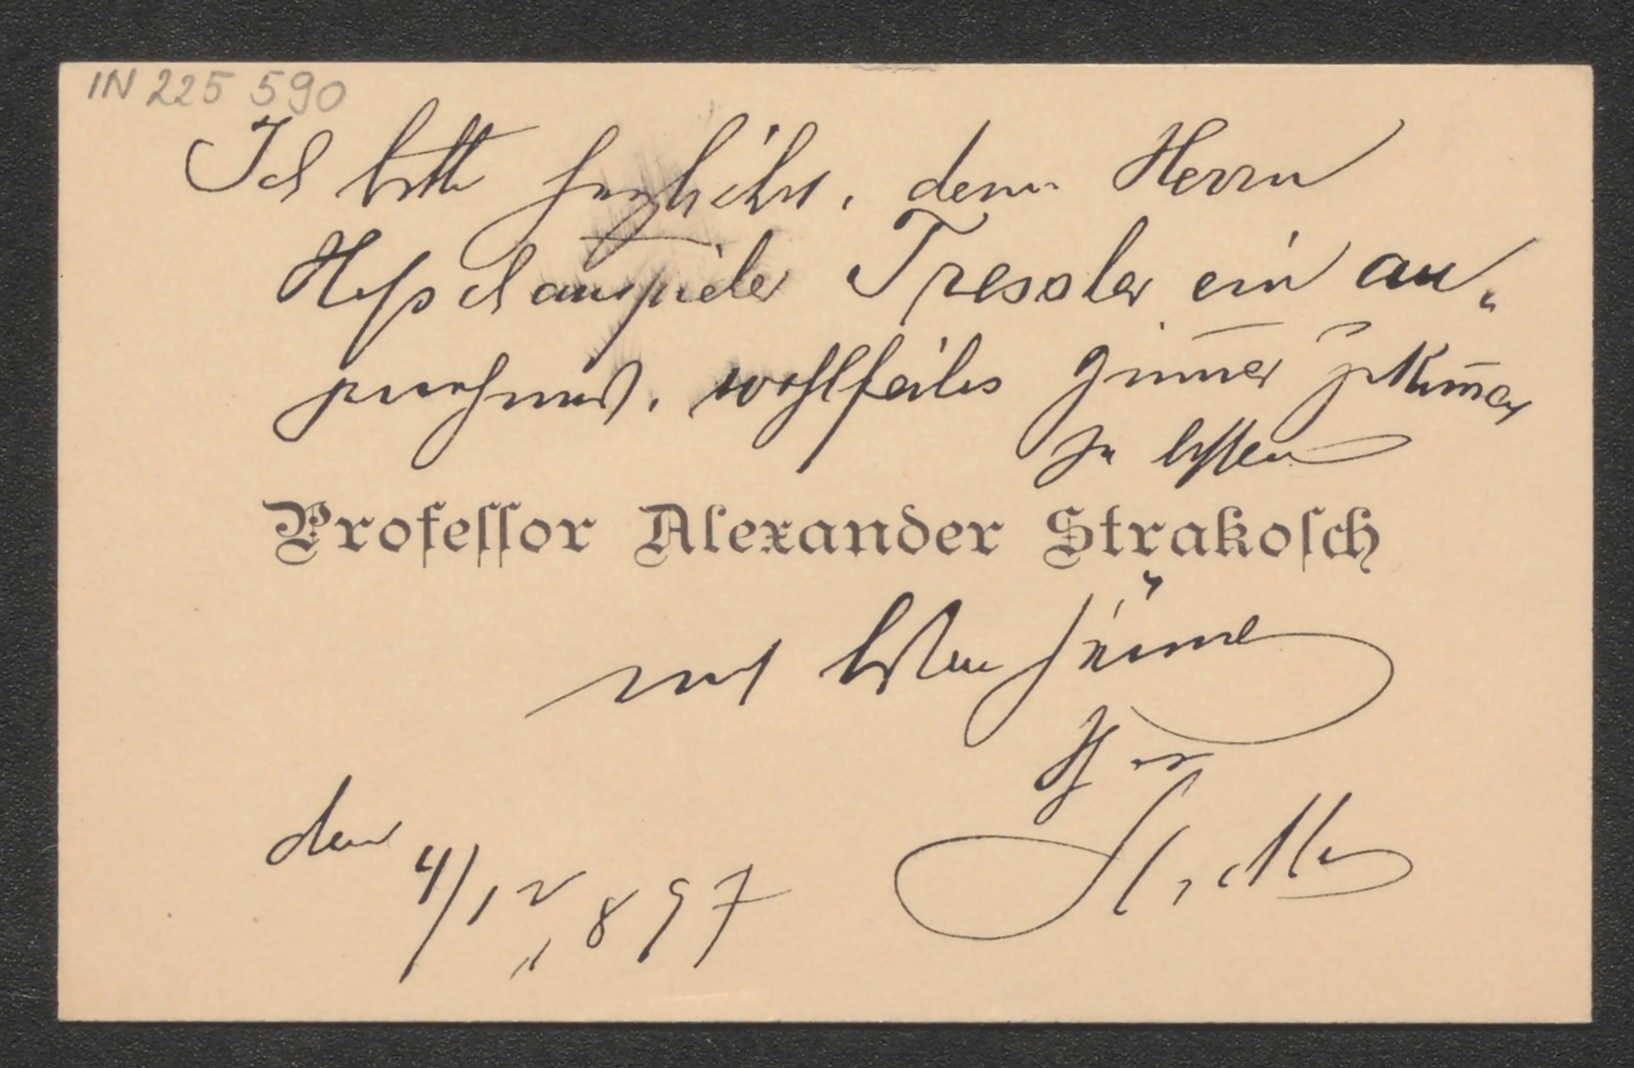 IN 225 590
Ich bitte herzlichst, dem Herrn
Hofschauspieler Tressler ein an-
genehmes, wohlfeiles Zimmer
zu lassen
Professor Alexander Strakosch
mit besten
Ihr
den 4/12 1897